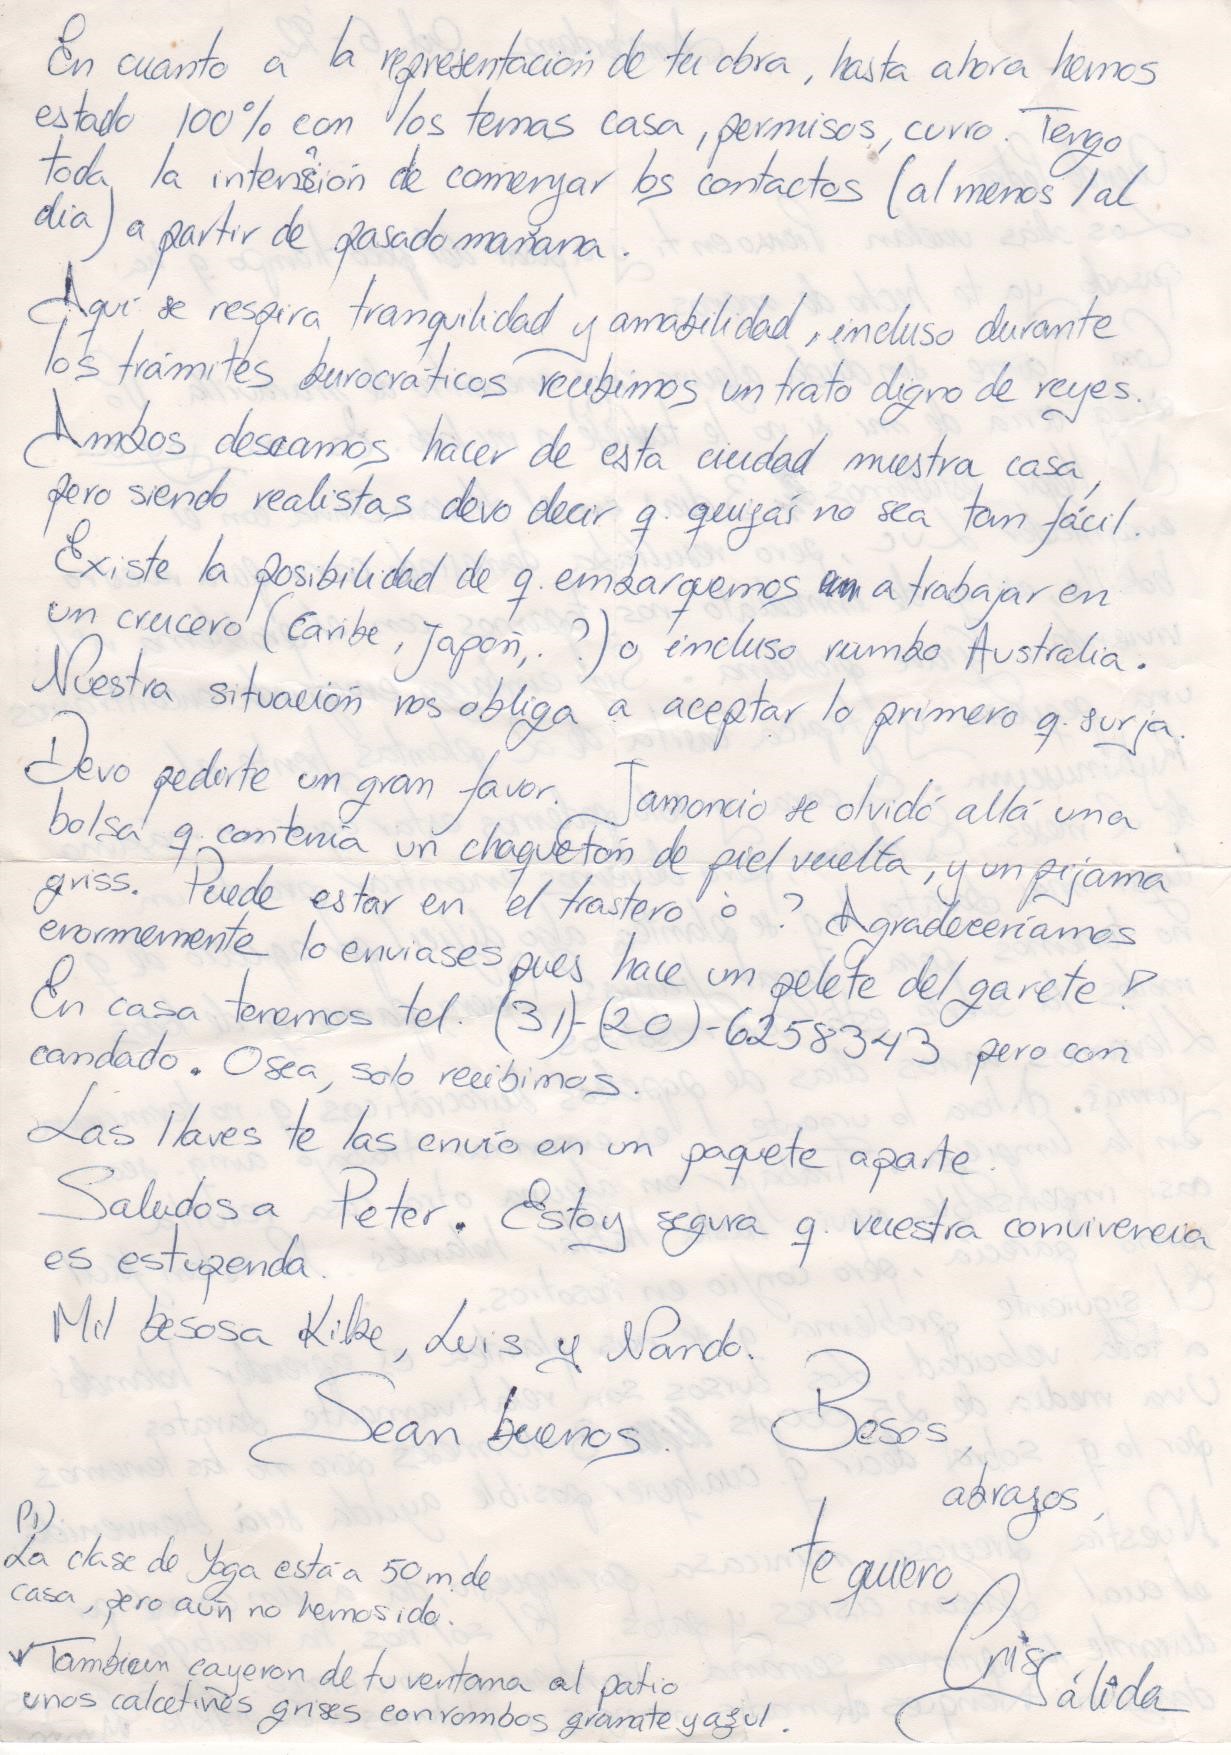 En cuanto a la representación de tu obra, hasta ahora hemos
estado 100% con los temas casa, permisos, curro. Tengo
toda la intensión de comenzar los contactos (al menos 1 al
dia) a partir de pasado mañana.
Aquí se respira tranquilidad y amabilidad, incluso durante
los trámites burocráticos recibimos un trato digno de reyes.
Ambos deseamos hacer de esta ciudad nuestra casa,
pero siendo realistas devo decir q. quizás no sea tan fácil.
Existe la posibilidad de q. embarquemos a trabajar en
un crucero (Caribe, Japón, . ?) o incluso rumbo Australia.
Nuestra situación nos obliga a aceptar lo primero q. surja.
Devo pedirte un gran favor. Jamoncio se olvidó allá una
bolsa q. contenía un chaquetón de piel vuelta, y un pijama
griss. Puede estar en el trastero ò ? Agradeceríamos
enormemente lo enviases pues hace un pelete del garete !
En casa tenemos tel. (31)-(20)-6258343 pero con
candado. Osea, solo recibimos.
Las llaves te las envío en un paquete aparte.
Saludos a Peter. Estoy segura q. vuestra convivencia
es estupenda.
Mil besos a Kike, Luis y Nando.
Sean buenos. Besos,
abrazos,
te quiero,
Cris
Cálida
P.D)
La clase de Yoga está a 50 m. de
casa, pero aún no hemos ido.
Tambien cayeron de tu ventana al patio
unos calcetines grises con rombos granate y azul.